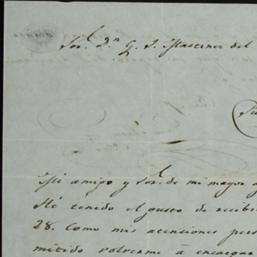 Sor. Dn. G. I. Martinez del
Mi amigo y Sor. de mi mayor
Hé tenido el gusto de recibi
28. Como mis atenciones per
mitido volverme á encargar